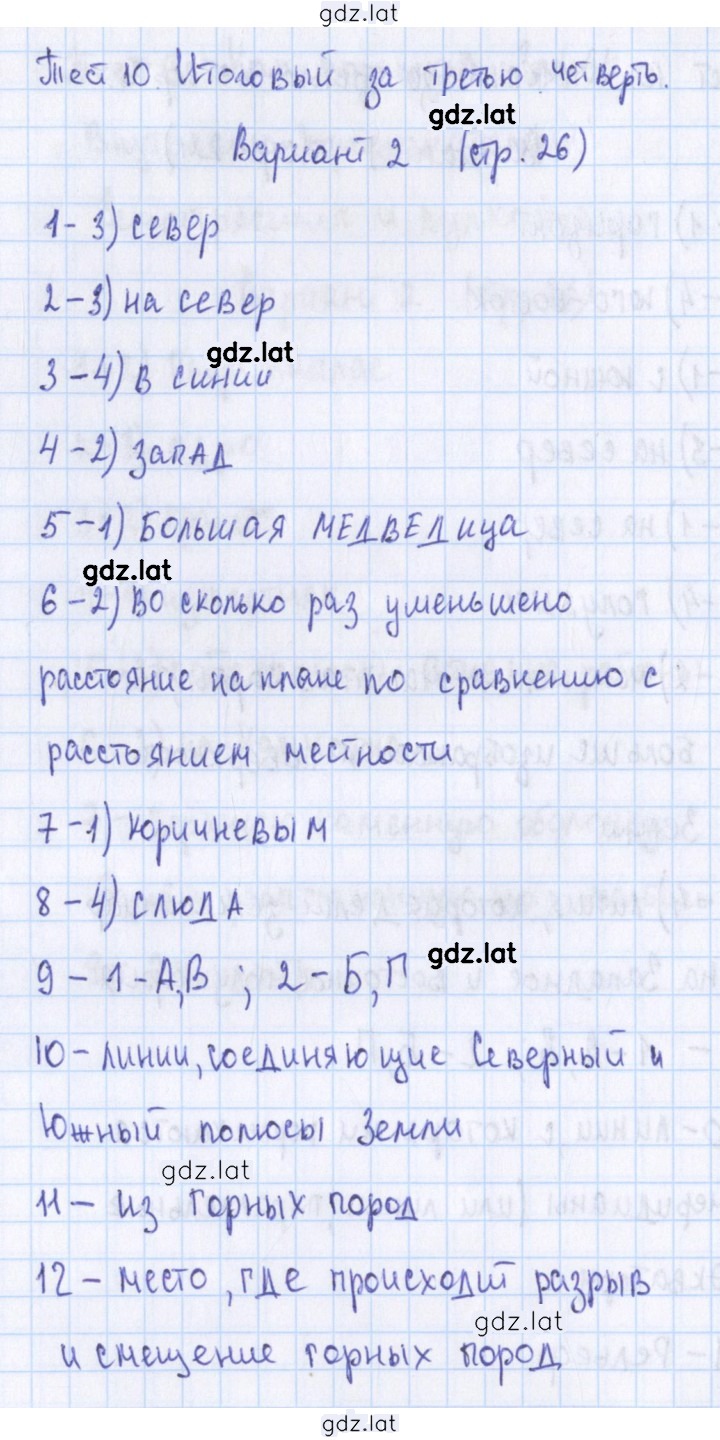 gdz.lat
Тест 10. Итоговый за третью четверть.
gdz.lat
Вариант 2 (стр. 26)
1 - 3) север
2 - 3) на север
gdz.lat
3 - 4) в синий
4 - 2) запад
5 - 1) Большая Медведица
gdz.lat
6 - 2) во сколько раз уменьшено
расстояние на плане по сравнению с
расстоянием местности
7 - 1) коричневым
8 - 4) слюда
gdz.lat
9 - 1 - А,В ; 2 - Б,Г
10 - линии, соединяющие Северный и
Южный полюсы Земли
gdz.lat
11 - из горных пород
12 - место, где происходит разрыв
gdz.lat
и смещение горных пород
gdz.lat